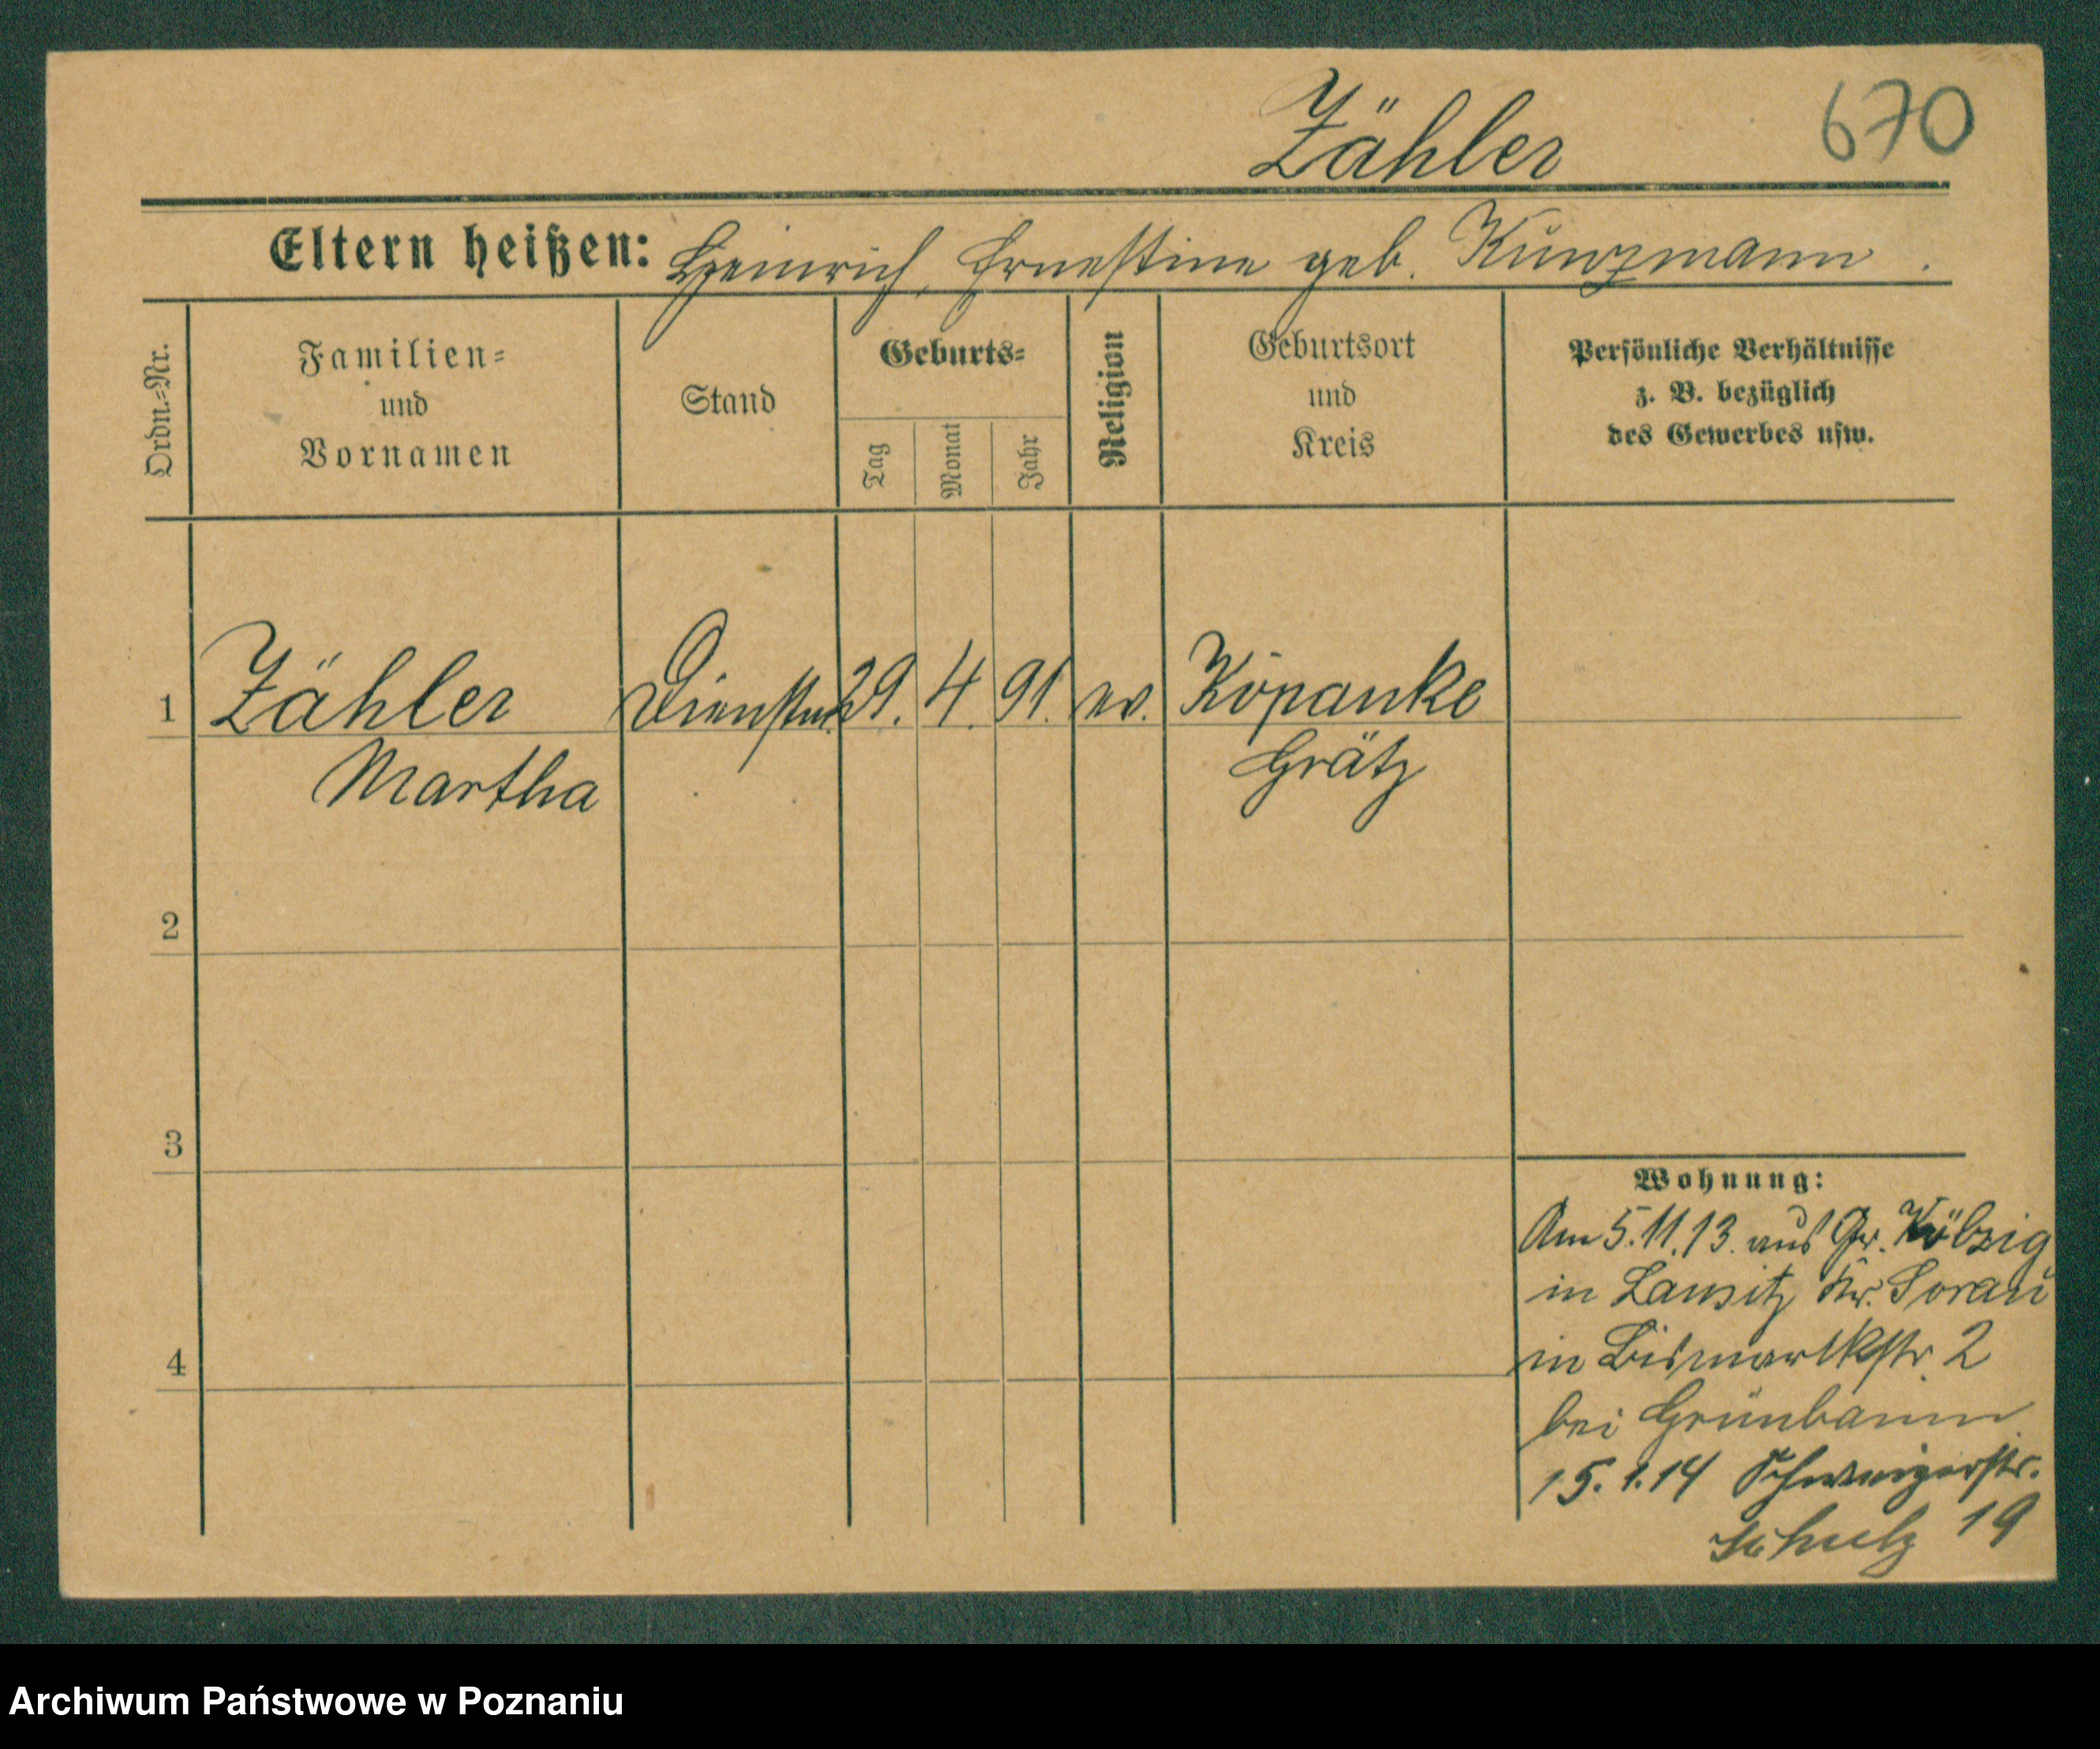 Zähler
670
Eltern heißen: Heinrich, Ernestine geb. Kunzmann.
Ordn.=Nr.
Familien=
und
Vornamen
Stand
Geburts=
Tag
Monat
Jahr
Religion
Geburtsort
und
Kreis
Persönliche Verhältnisse
z. B. bezüglich
des Gewerbes usw.
1 Zähler Dienstm. 29. 4. 91. ev. Kopanke
Martha Grätz
2
3
4
Wohnung:
Am 5.11.13. aus Gr. Kölzig
in Lausitz Kr. Sorau
in Bismarckstr. 2
bei Grünbaum
15.1.14
Schulz 19
Archiwum Państwowe w Poznaniu